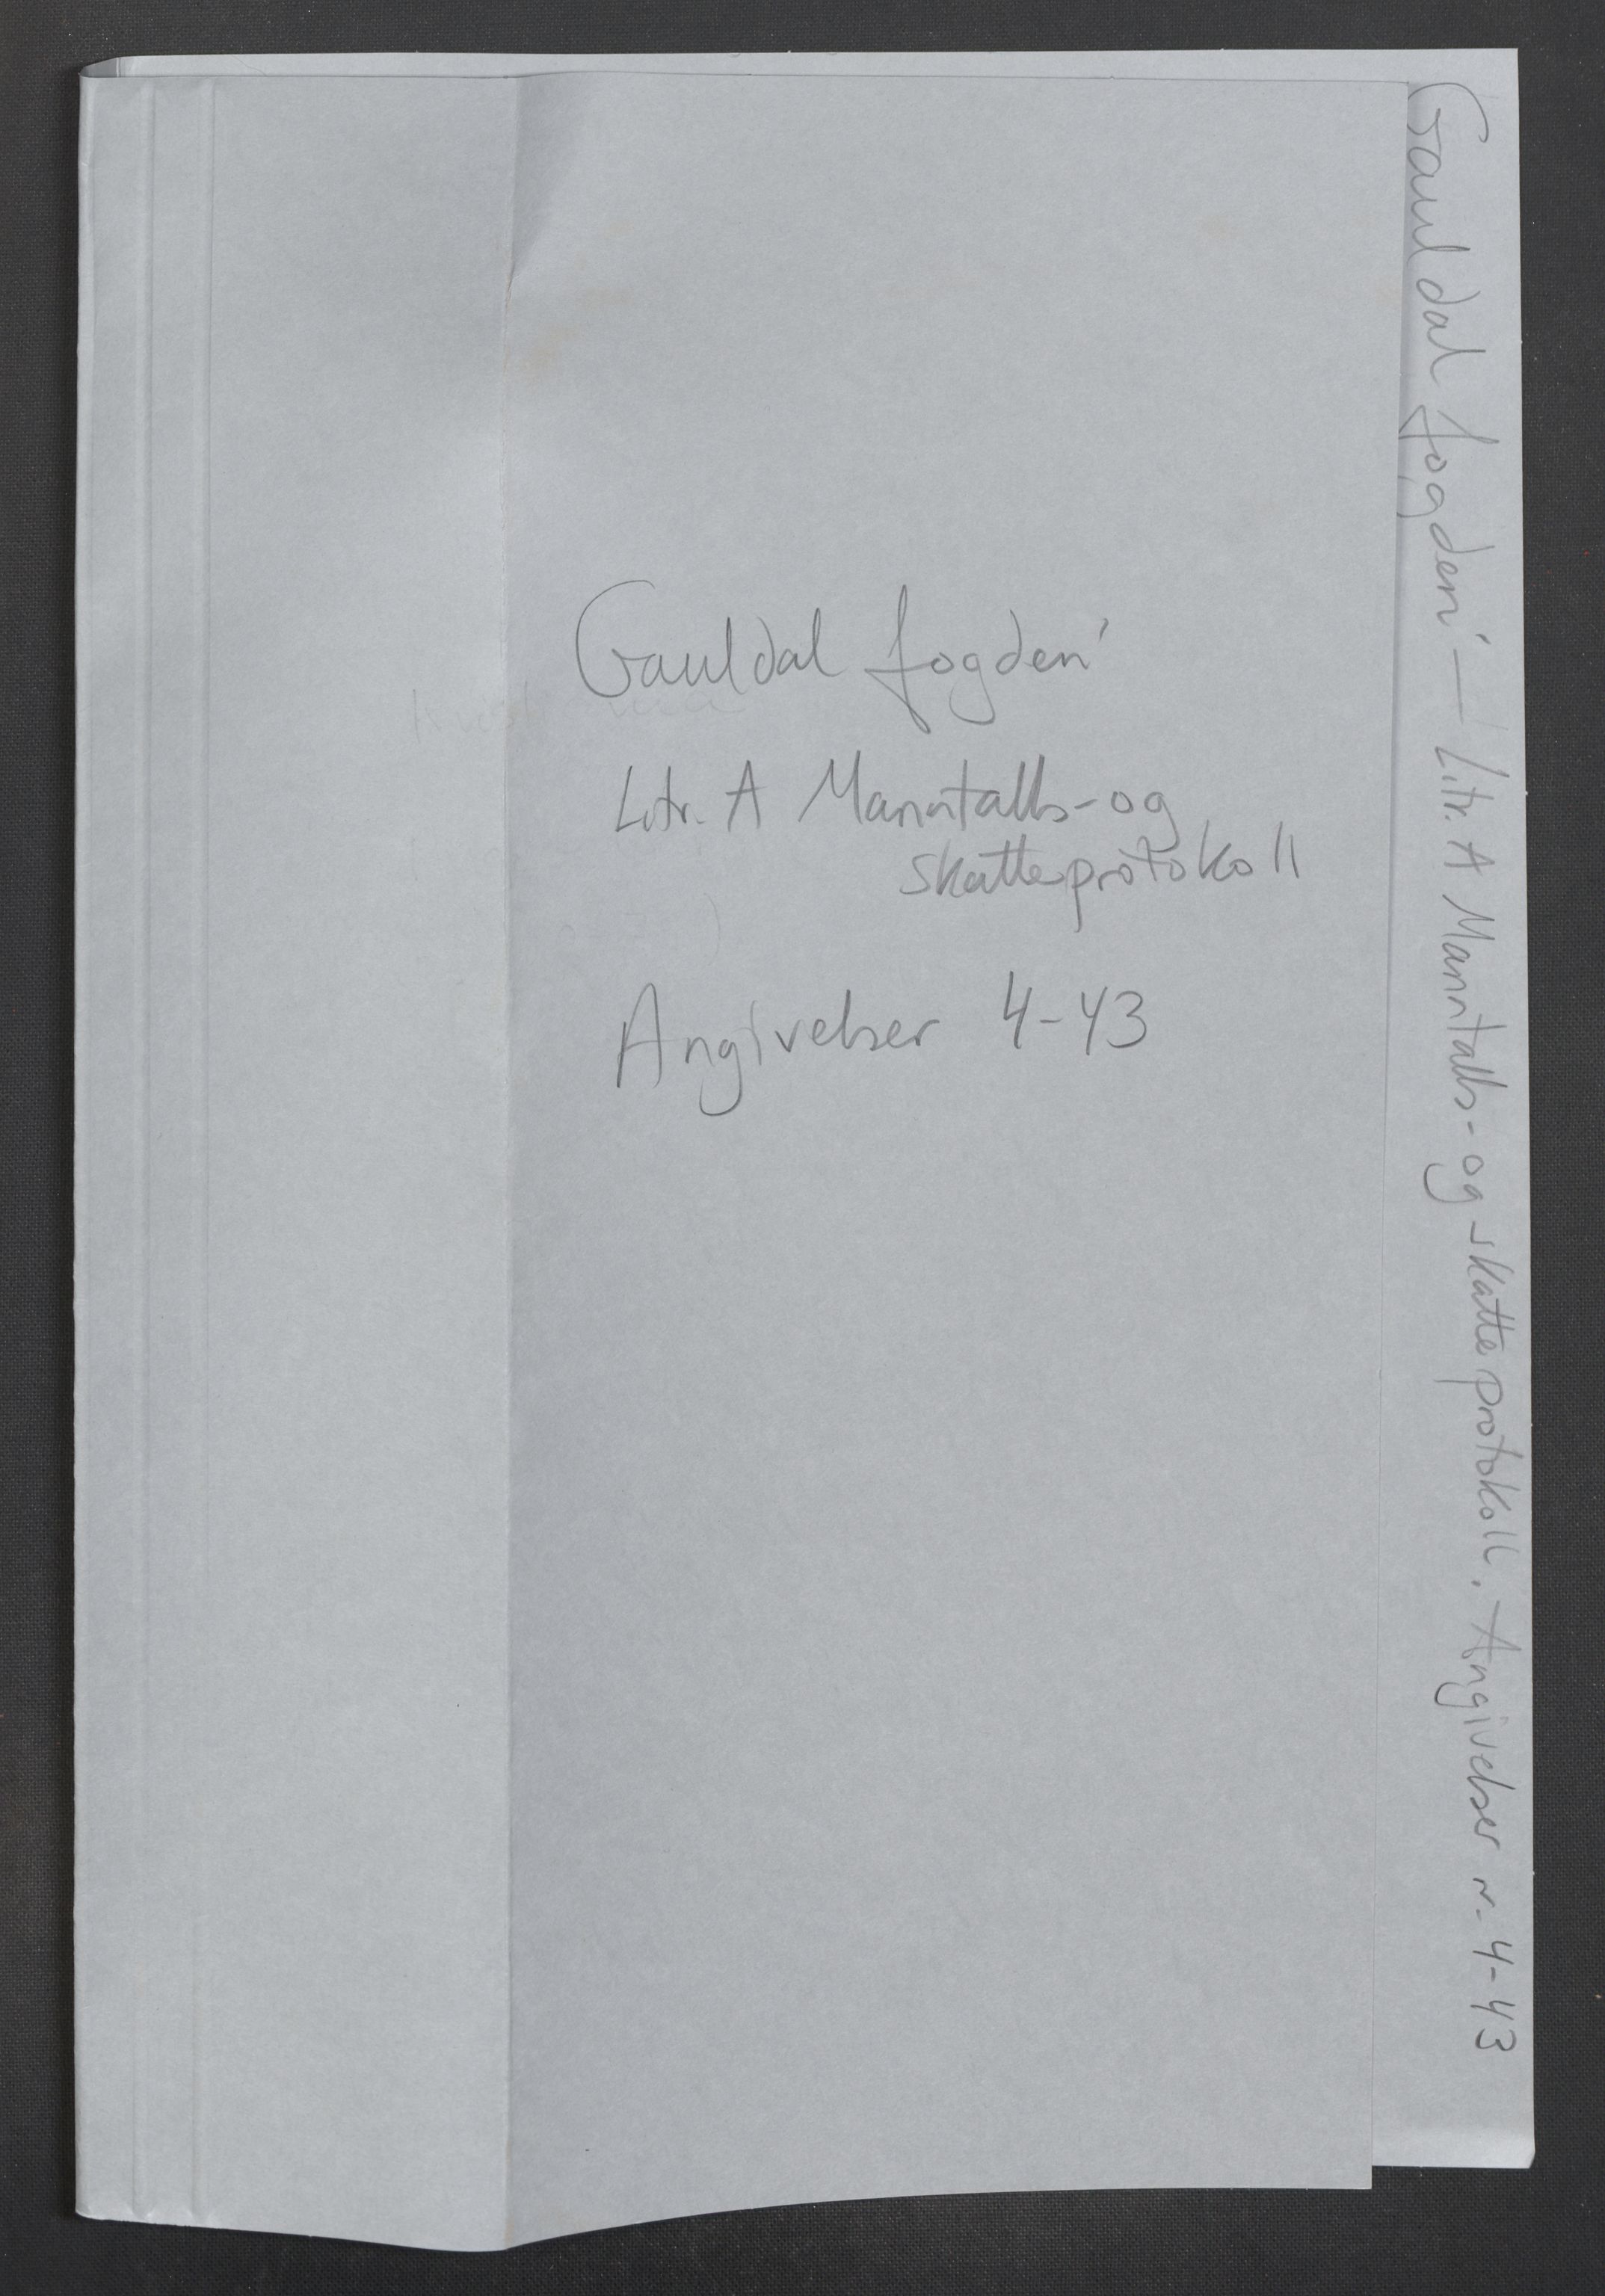 Gauldal fogderi
Litr. A Manntalls- og
skatteprotokoll
Angivelser 4-43
Gauldal fogderi - Litr. A Manntalls- og skatteprotokoll. Angivelser nr. 4-43